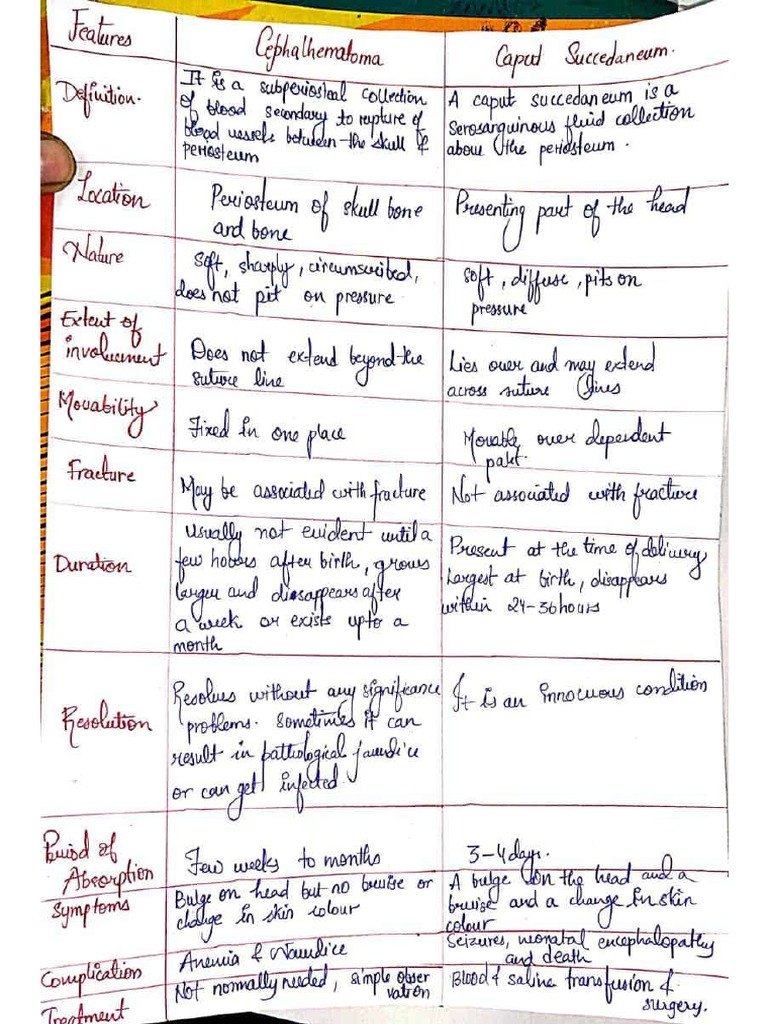 Features
Cephalhematoma
Caput Succedaneum.
Definition.
It is a subperiosteal collection
of blood secondary to rupture of
blood vessels between the skull &
periosteum
A caput succedaneum is a
serosanguinous fluid collection
above the periosteum.
Location
Periosteum of skull bone
and bone
Presenting part of the head
Nature
Soft, sharply, circumscribed,
does not pit on pressure.
Soft, diffuse, pits on
pressure.
Extent of
involvement
Does not extend beyond the
suture line
Lies over and may extend
across suture lines
Movability
Fixed in one place
Movable over dependent
part.
Fracture
May be associated with fracture
Not associated with fracture
Duration
Usually not evident until a
few hours after birth, grows
larger and disappears after
a week or exists upto a
month
Present at the time of delivery
largest at birth, disappears
within 24-36 hours
Resolution
Resolves without any significance
problems. Sometimes it can
result in pathological jaundice
or can get infected.
It is an innocuous condition
Period of
Absorption
Few weeks to months
3-4 days.
Symptoms
Bulge on head but no bruise or
change in skin colour
A bulge on the head and a
bruise and a change in skin
colour
Complication
Anemia & Jaundice
Seizures, neonatal encephalopathy
and death
Treatment
Not normally needed, simple obser
vation
Blood & saline transfusion &
surgery.